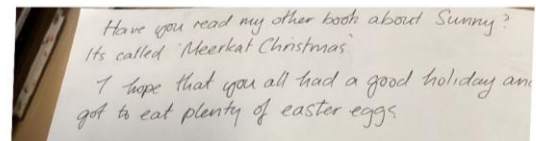 Have you read my other book about Sunny?
Its called 'Meerkat Christmas'
I hope that you all had a good holiday and
got to eat plenty of easter eggs